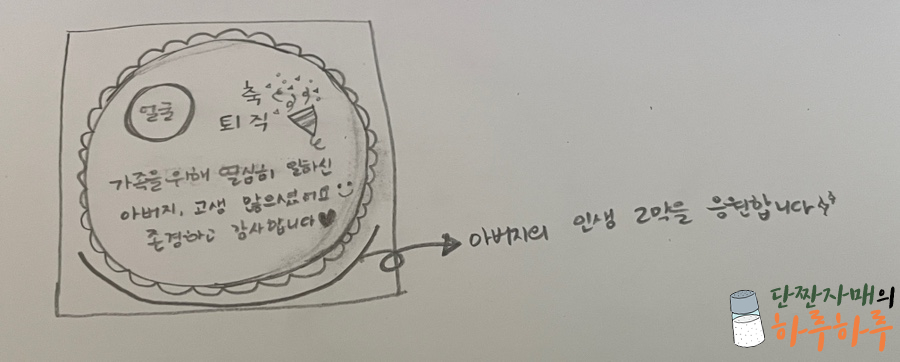 얼굴
축
퇴직
가족을 위해 열심히 일하신
아버지, 고생 많으셨어요
존경하고 감사합니다
아버지의 인생 2막을 응원합니다
단짠자매의
하루하루